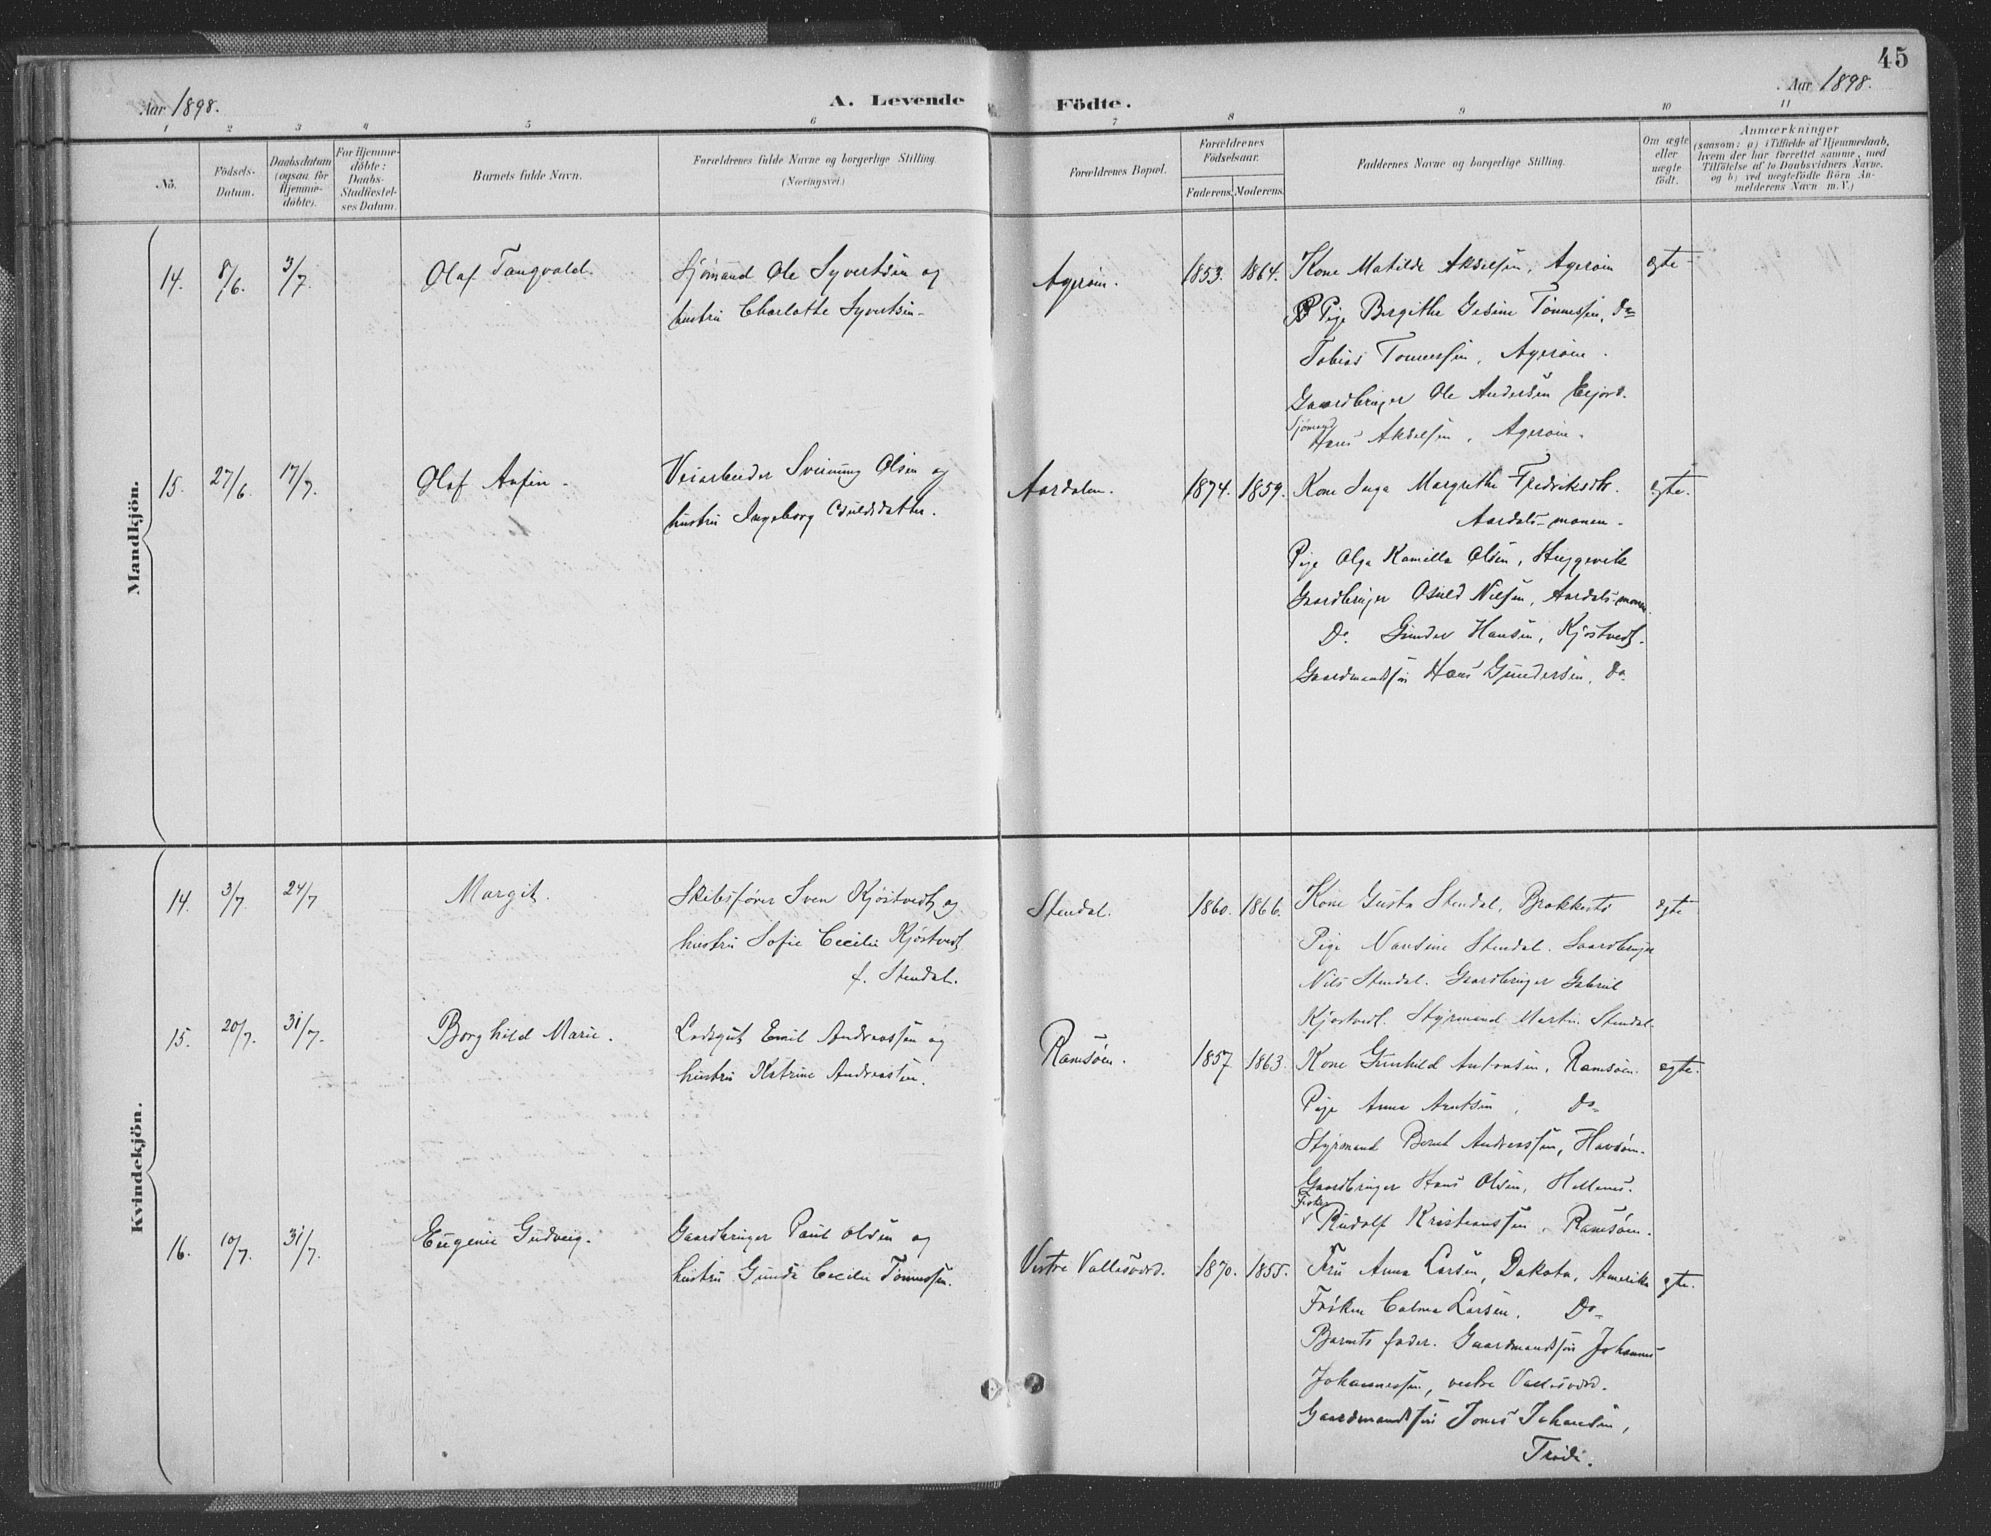 45
Aar 1898.
A. Levende Födte.
Aar 1898.
1 2 3 4 5 6 7 8 9 10 11
No.
Födsels-
Datum.
Daabsdatum
(ogsaa for
Hjemme-
döbte).
For Hjemme-
döbte:
Daabs-
Stadfæstel-
ses Datum.
Barnets fulde Navn.
Forældrenes fulde Navne og borgerlige Stilling
(Næringsvei.)
Forældrenes Bopæl.
Forældrenes
Födselsaar.
Faderens. Moderens.
Faddernes Navne og borgerlige Stilling.
Om ægte
eller
uægte
födt.
Anmærkninger
(saasom: a) i Tilfælde af Hjemmedaab,
hvem der har forrettet samme, med
Tilföielse af to Daabsvidners Navne,
og b) ved uægtefödte Börn An-
melderens Navn m. V.)
Mandkjön.
14. 8/6. 3/7. Olaf Tangvald. Sjømand Ole Syvertsen og
hustru Charlotte Syvertsen.
Agerøen. 1853. 1864. Kone Matilde Akselsen, Agerøen ægte
Pige Bergithe Gesine Tønnessen, Do
Tobias Tønnessen, Agerøen.
Gaardbruger Ole Andersen
Sjømand
Hans Akselsen, Agerøen.
15. 27/6. 17/7. Olaf Anfin. Veiarbeider Sveinung Olsen og
hustru Ingeborg
Aardalen. 1874. 1859. Kone Inga Margrethe Fredriksdtr. ægte.
Aardals-monen.
Pige Olga Kamilla Olsen, Stuggevik
Gaardbruger Osuld Nilsen, Aardals-monen.
Do. Gunder Hansen, Kjøstvedt.
Gaardmandssøn Hans Gundersen, Do
Kvindekjön.
14. 3/7. 24/7 Margit. Skibsfører Sven Kjøstvedt og
hustru Sofie Cecilie Kjøstvedt
f. Stendal.
Stendal. 1860. 1866. Kone Gusta Stendal, Brokkestø ægte
Pige Nansine Stendal. Gaardbruger
Nils Stendal. Gaardbruger Gabriel
Kjøstvedt. Styrmand Martin Stendal.
15. 20/7. 31/7. Borghild Marie. Lodsgut Emil Andreassen og
hustru Katrine Andreassen.
Ramsøen. 1857. 1863. Kone Gunhild Antonsen, Ramsøen. ægte.
Pige Anna Arntsen, Do
Styrmand Bernt Andreassen, Havsøen.
Gaardbruger Hans Olsen, Hellenes.
Fisker
Rudolf Kristianssen, Ramsøen.
16. 10/7. 31/7. Eugenie Gudveig. Gaardbruger Paul Olsen og
hustru Gunda Cecilie Tønnessen.
Vestre Vallesværd. 1870. 1855. Fru Anna Larsen, Dakota, Amerika ægte.
Frøken Calma Larsen, Do
Barnets fader. Gaardmandssøn Johannes
Johannessen, vestre Vallesværd.
Gaardmandssøn Jones Johansen,